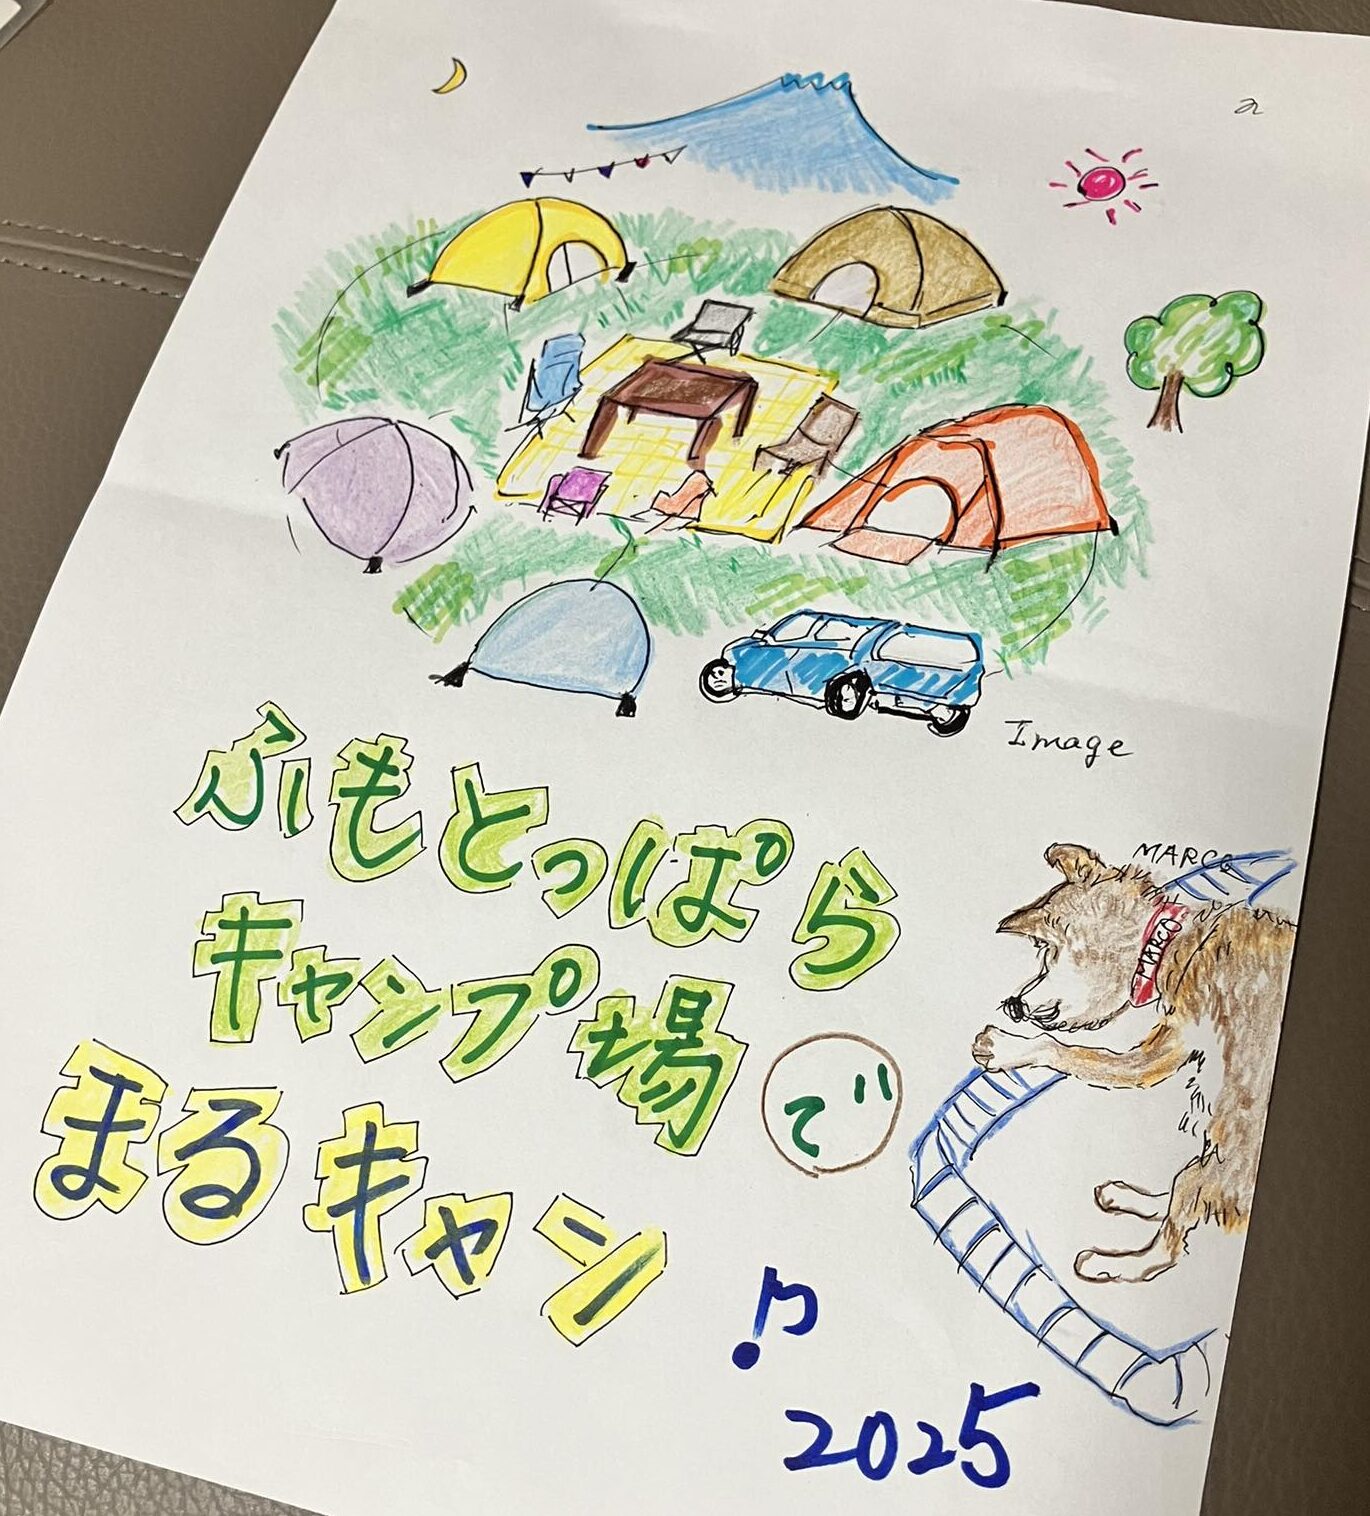 Image
ふもとっぱら
キャンプ場で
まるキャン
MARCO
MARCO
2025